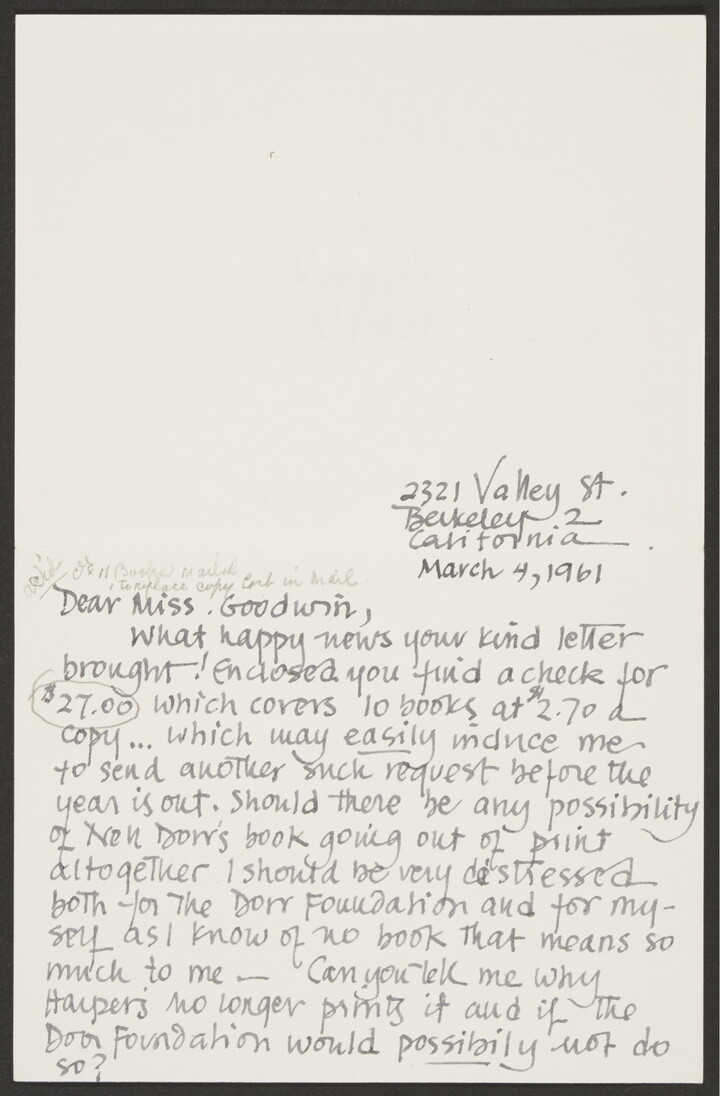 2321 Valley St.
Berkeley 2
California
March 4, 1961
11 Books mailed
to replace copy lost in mail.
Dear Miss. Goodwin,
What happy news your kind letter
brought! Enclosed you find a check for
$27.00 which covers 10 books at $2.70 a
copy... which may easily induce me
to send another such request before the
year is out. Should there be any possibility
of Nell Dorr's book going out of print
altogether I should be very distressed
both for The Dorr Foundation and for my-
self as I know of no book that means so
much to me — Can you tell me why
Harper's no longer prints it and if the
Dorr Foundation would possibily not do
so?